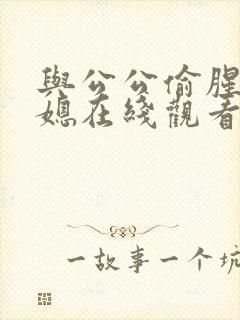 與公公偷腥
媳在綫觀看
一故事一个坑